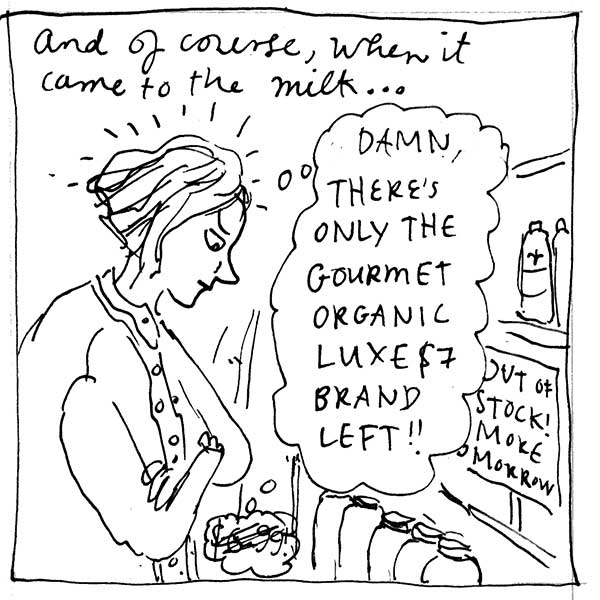 and of course, when it
came to the milk...
DAMN,
THERE'S
ONLY THE
GOURMET
ORGANIC
LUXE $7
BRAND
LEFT!!
OUT OF
STOCK!
MORE
OMORROW